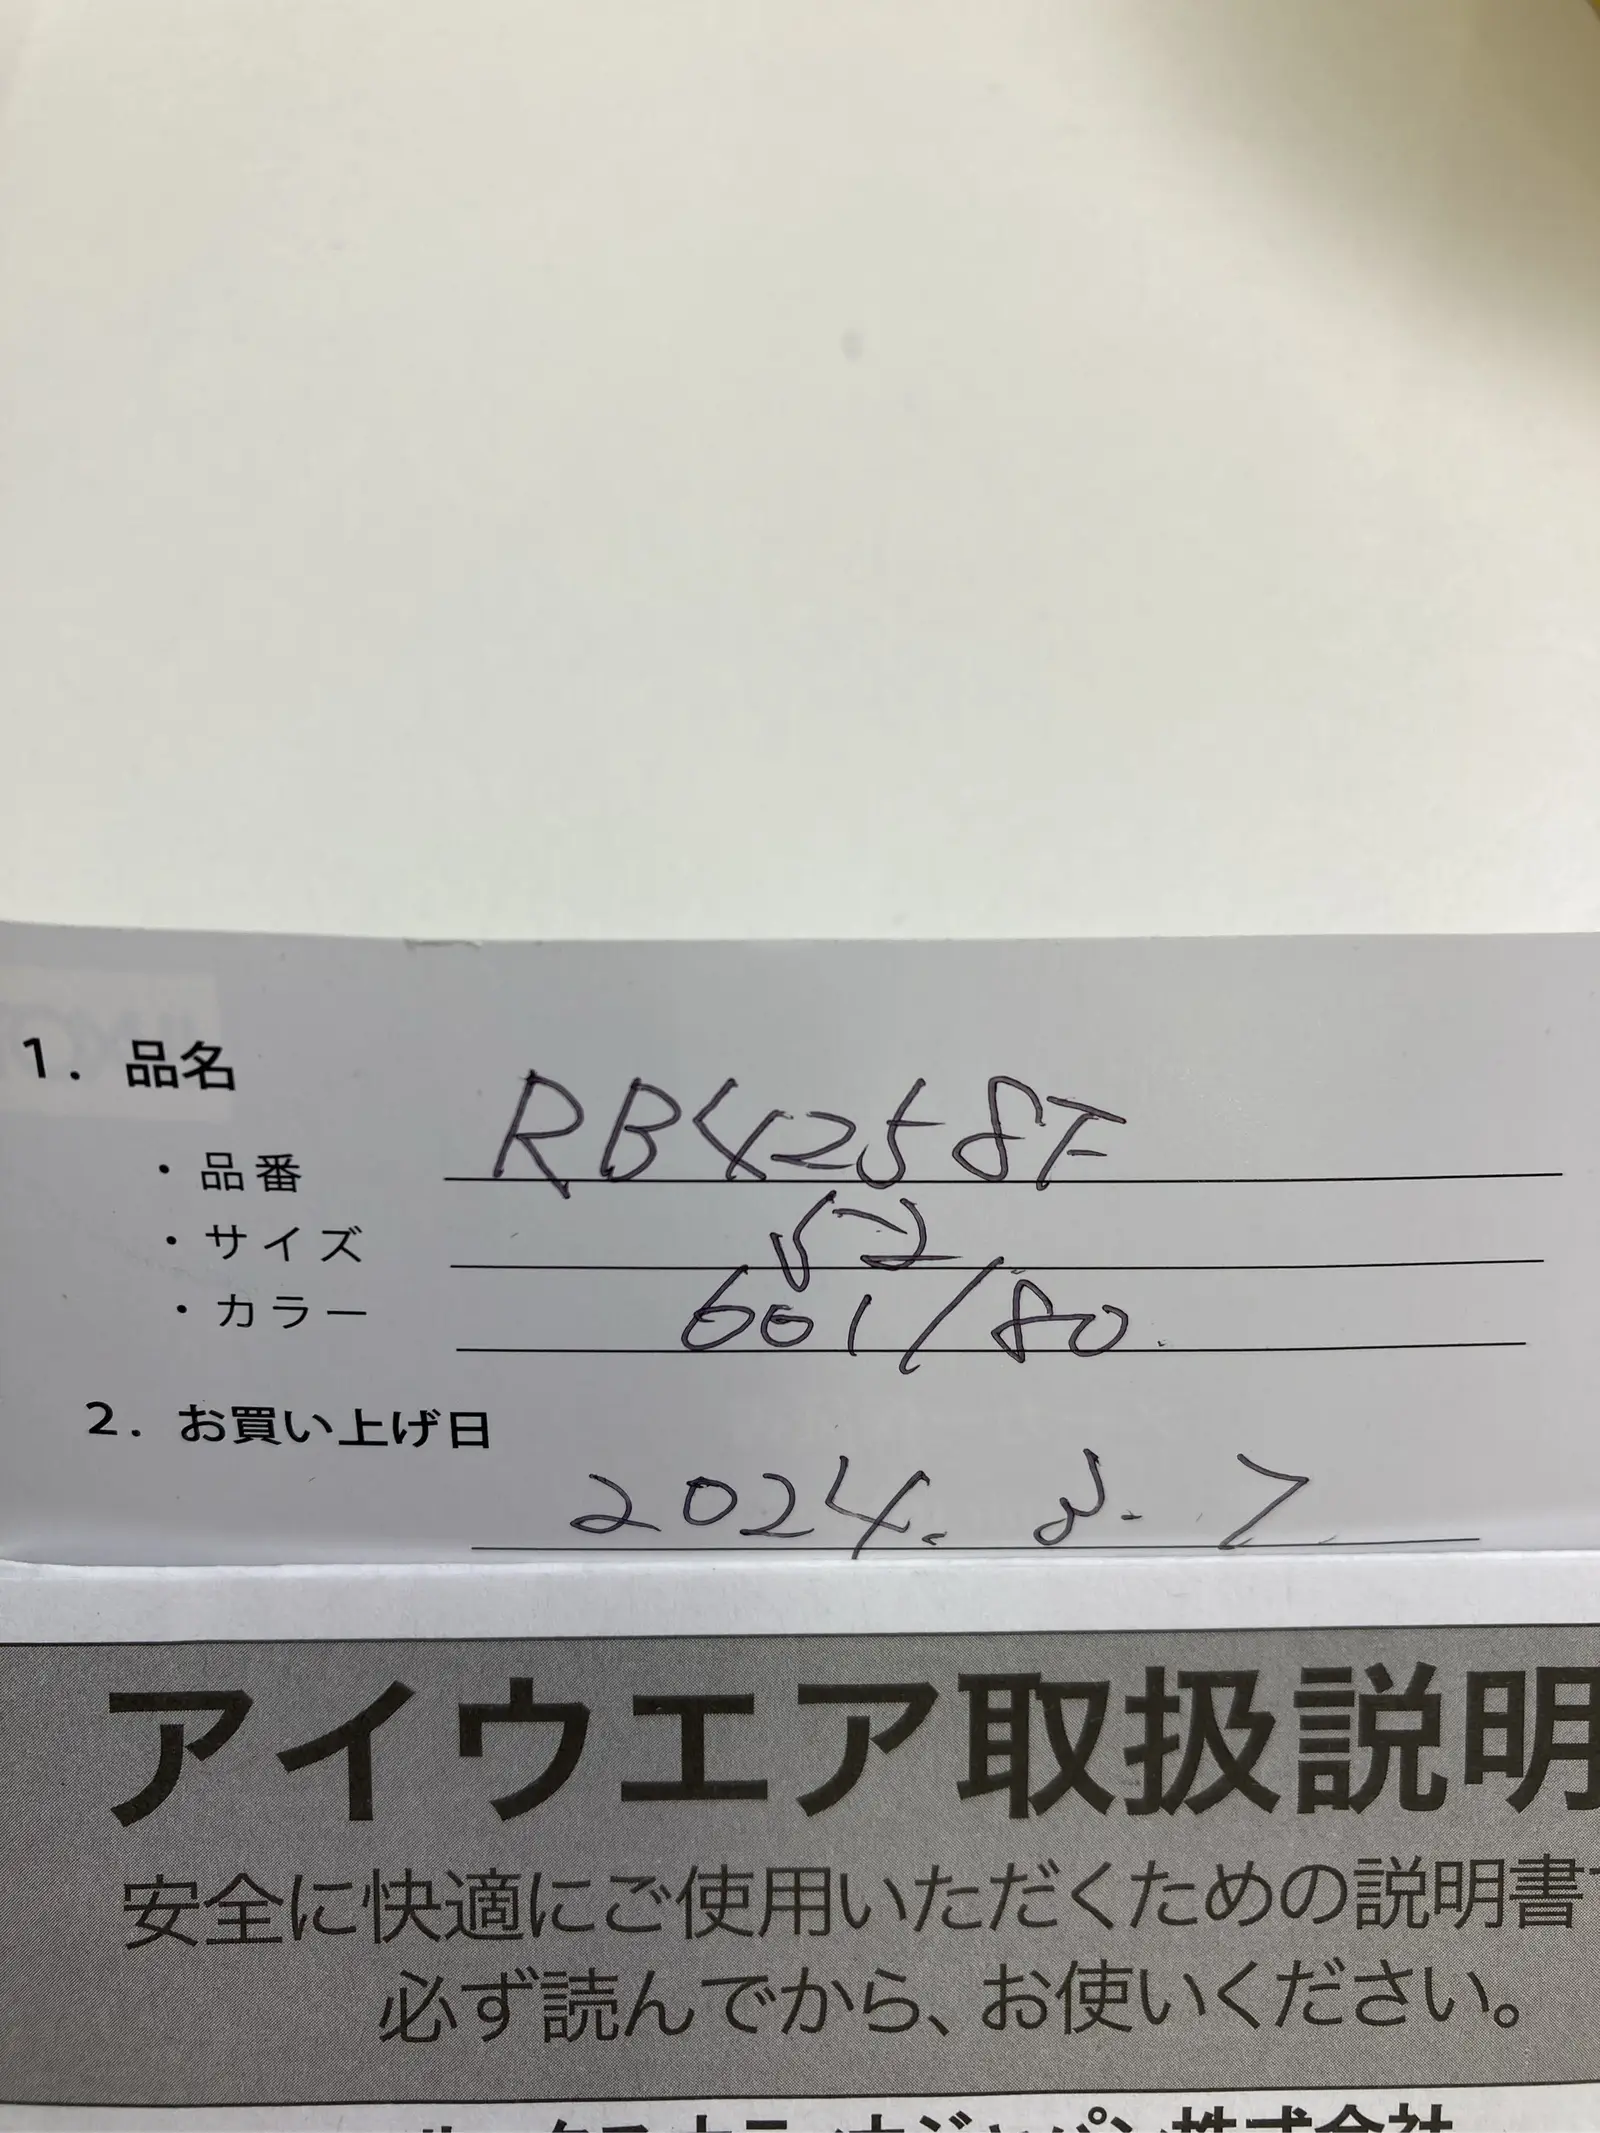 1. 品名
・品番 RB4258F
・サイズ 52
・カラー 601/80
2. お買い上げ日
2024. 8. 7
アイウエア取扱説明
安全に快適にご使用いただくための説明書
必ず読んでから、お使いください。
ジャパン株式会社